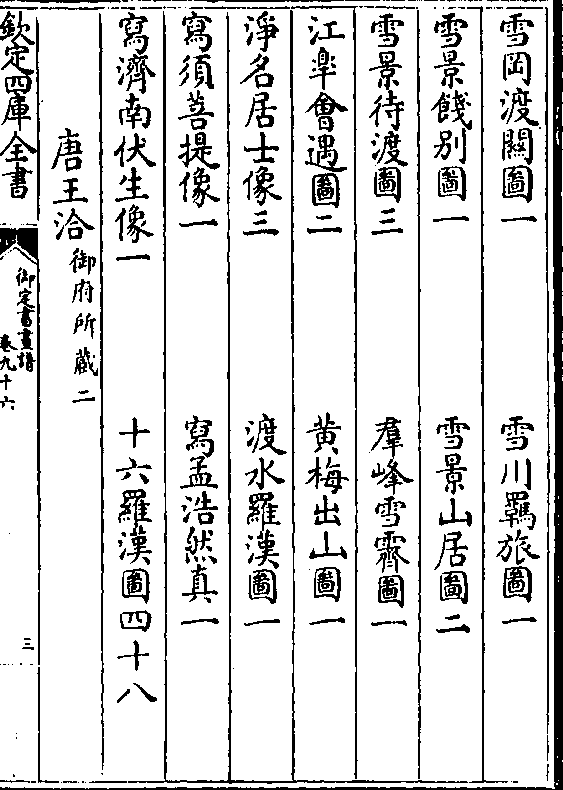 雪岡渡關圖一　雪川羈旅圖一
雪景餞别圖一　雪景山居圖二
雪景待渡圖三　羣峰雪霽圖一
江臯會遇圖二　黄梅出山圖一
淨名居士像三　渡水羅漢圖一
寫須菩提像一　寫孟浩然真一
寫濟南伏生像一　十六羅漢圖四十八
唐王洽御府所藏二
欽定四庫全書　御定書畫譜　卷九十六　三